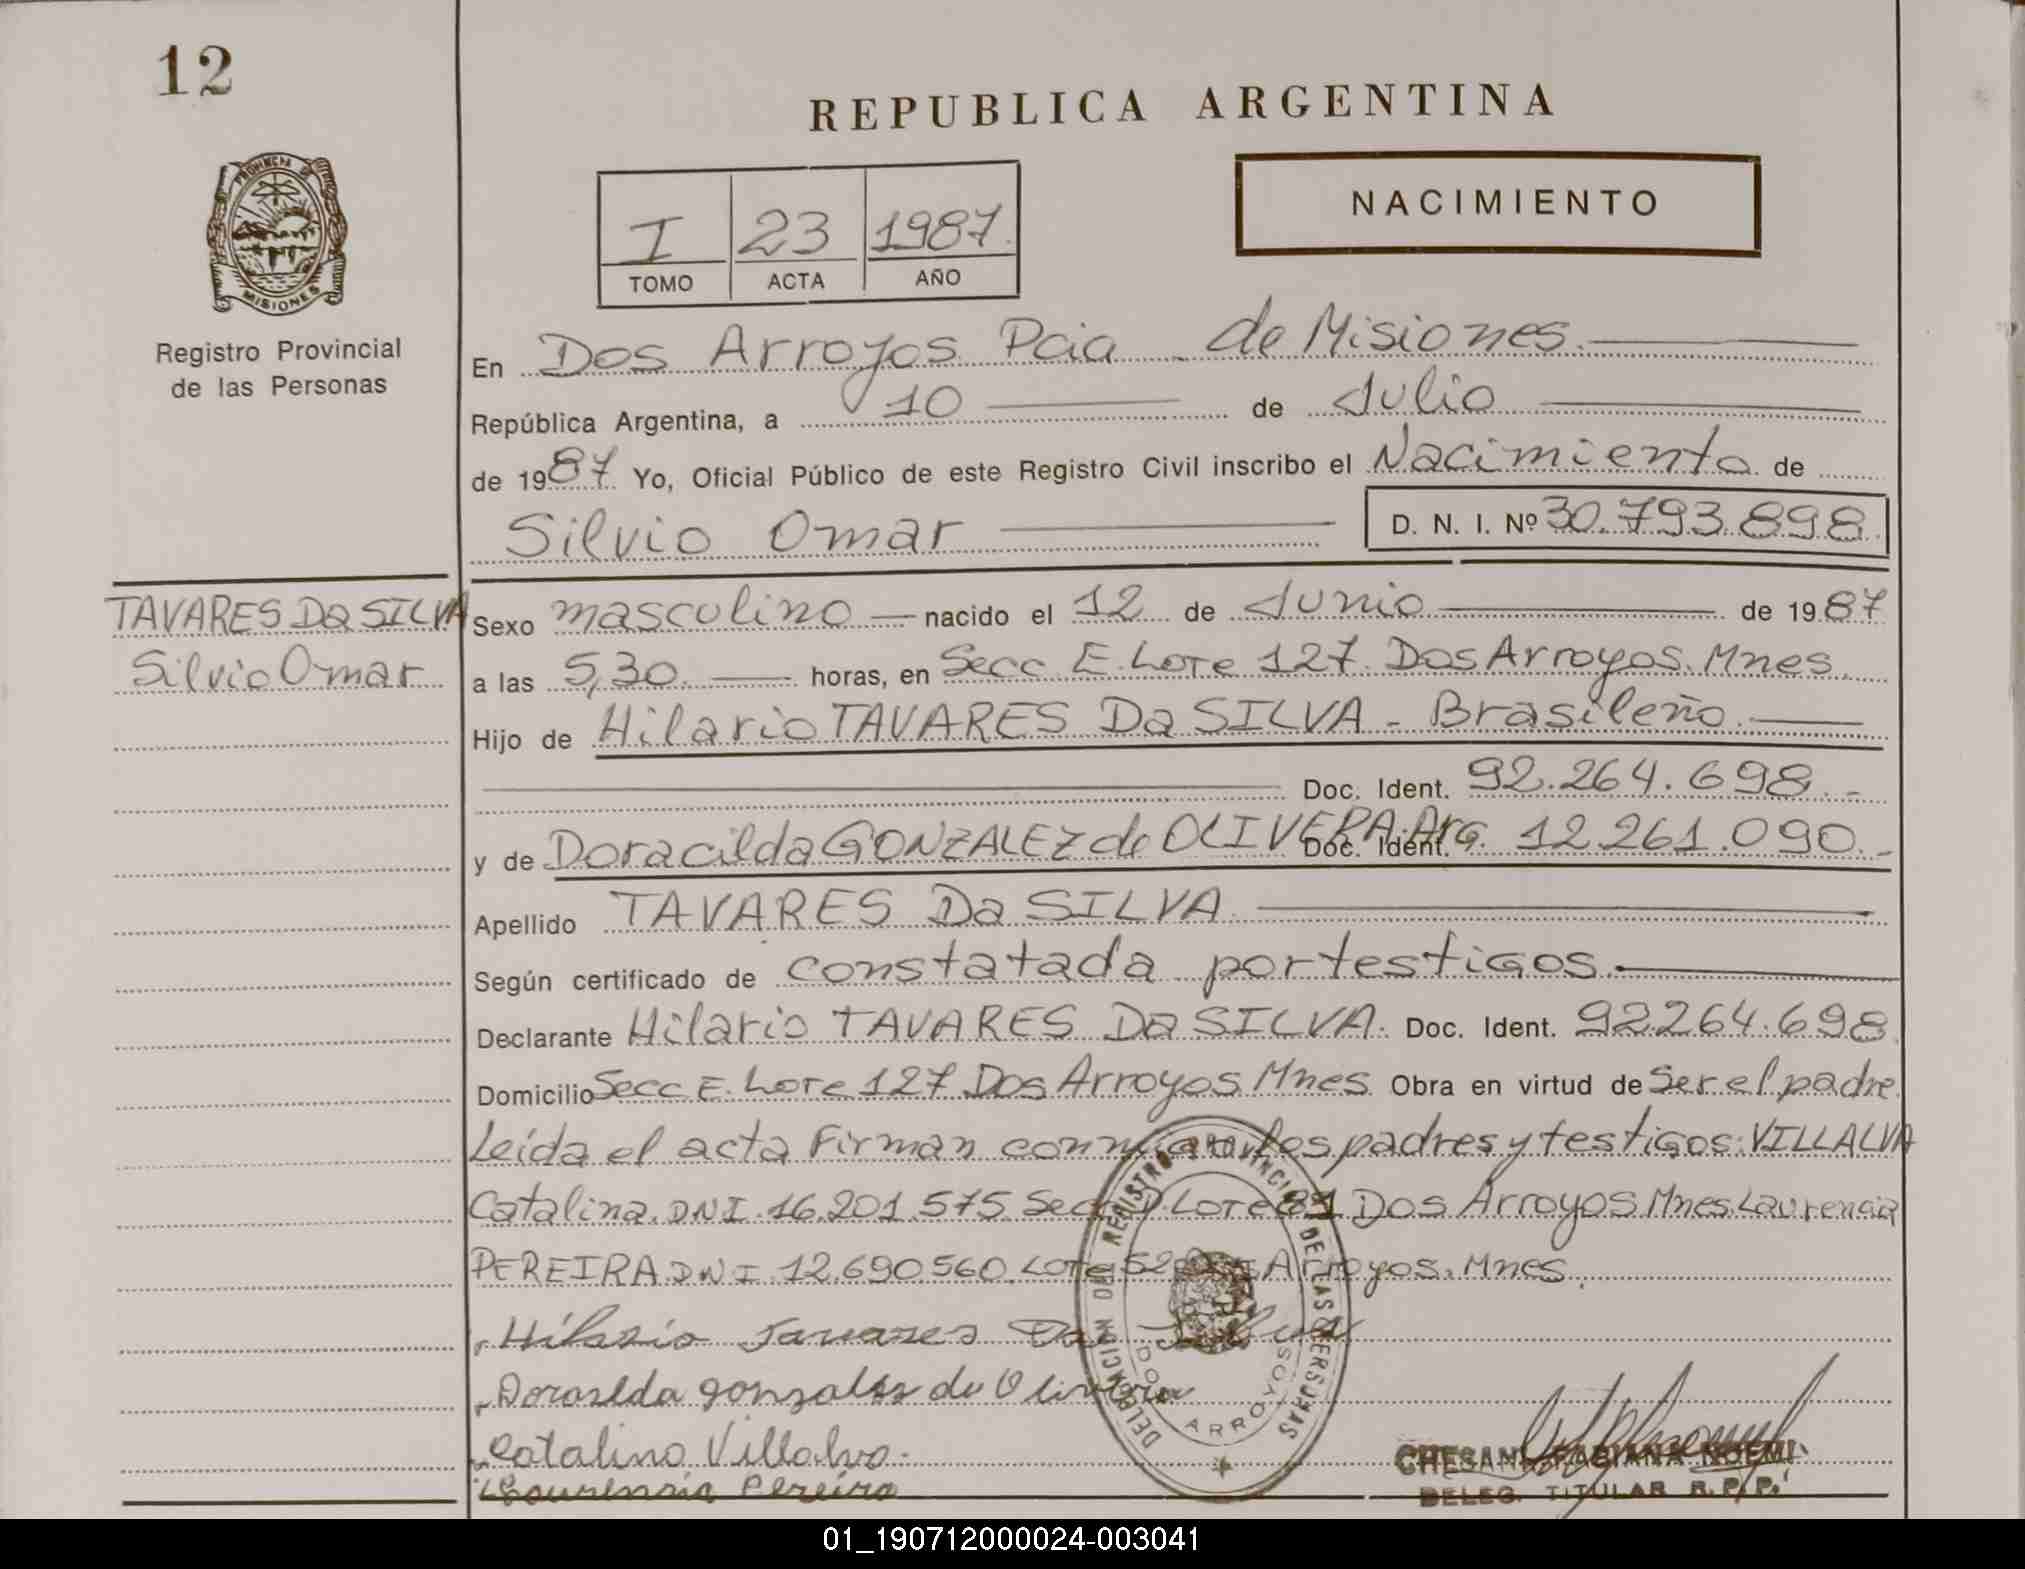 12
REPUBLICA ARGENTINA
PROVINCIA DE
MISIONES
Registro Provincial
de las Personas
NACIMIENTO
I 23 1987
TOMO ACTA AÑO
En Dos Arroyos Pcia de Misiones
República Argentina, a 10 de Julio
de 1987 Yo, Oficial Público de este Registro Civil inscribo el Nacimiento de
Silvio Omar D. N. I. Nº 30.793.898
TAVARES Da SILVA
Silvio Omar
Sexo masculino nacido el 12 de Junio de 1987
a las 5,30 horas, en Secc E. Lote 127. Dos Arroyos. Mnes.
Hijo de Hilario TAVARES Da SILVA - Brasileño.
Doc. Ident. 92.264.698.-
y de Doracilda GONZALEZ de OLIVERA. Arg. Doc. Ident. 12.261.090.-
Apellido TAVARES Da SILVA
Según certificado de constatada por testigos.
Declarante Hilario TAVARES Da SILVA. Doc. Ident. 92264.698
Domicilio Secc E. Lote 127 Dos Arroyos Mnes Obra en virtud de Ser el padre
Leída el acta Firman conmigo los padres y testigos: VILLALVA
Catalina. DNI. 16.201.575. Secc D. Lote 89 Dos Arroyos Mnes. Laurencia
PEREIRA DNI. 12.690.560. Lote 52 Dos Arroyos. Mnes.
Hilario Tavares Da Silva
Doraselda gonzalez de Olivera
Catalina Villalva.
Laurencia Pereira
DELEGACION DEL REGISTRO PROVINCIAL DE LAS PERSONAS
DOS ARROYOS
CHESANI FABIANA NOEMI
DELEG. TITULAR R. P. P.
01_190712000024-003041